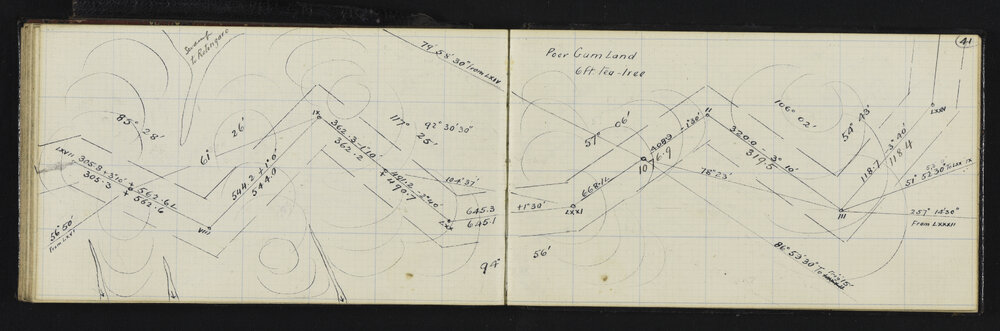 41
Swamp
to Rotongaro
79° 58' 30" from LXXV
Poor Gum Land
6ft Tea-tree
85° 28'
61° 26'
117° 25'
92° 30' 30"
57° 06'
106° 02'
54° 43'
LXVII
305.8 + 3° 10'
305.3
+ 562.61
+ 562.6
VIII
544.2 + 1° 0'
544.0
IX
362.3 - 1° 10'
362.2
491.2 - 2° 40'
490.7
104° 37'
LXX
645.3
645.1
+1° 30'
LXXI
668.14
10
4089 - 1° 30'
76.9
II
320.0 - 3° 10'
319.5
78° 23'
III
118.7 - 3° 40'
118.4
LXXV
51° 52' 30" To LXX IX
257° 14' 30"
From LXXXII
86° 53' 30" To
56° 50'
from LXVI
94° 56'